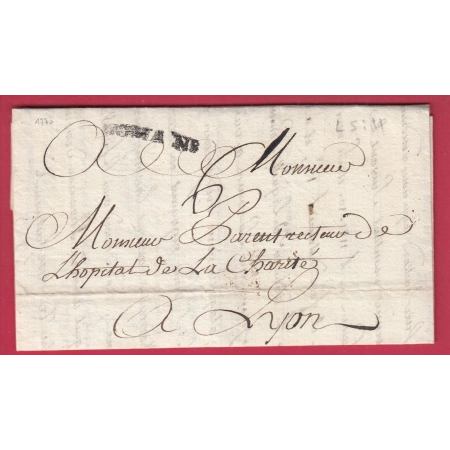 1770
Monsieur
6
Monsieur Parent recteur de
L'hopital de La Charité
A Lyon